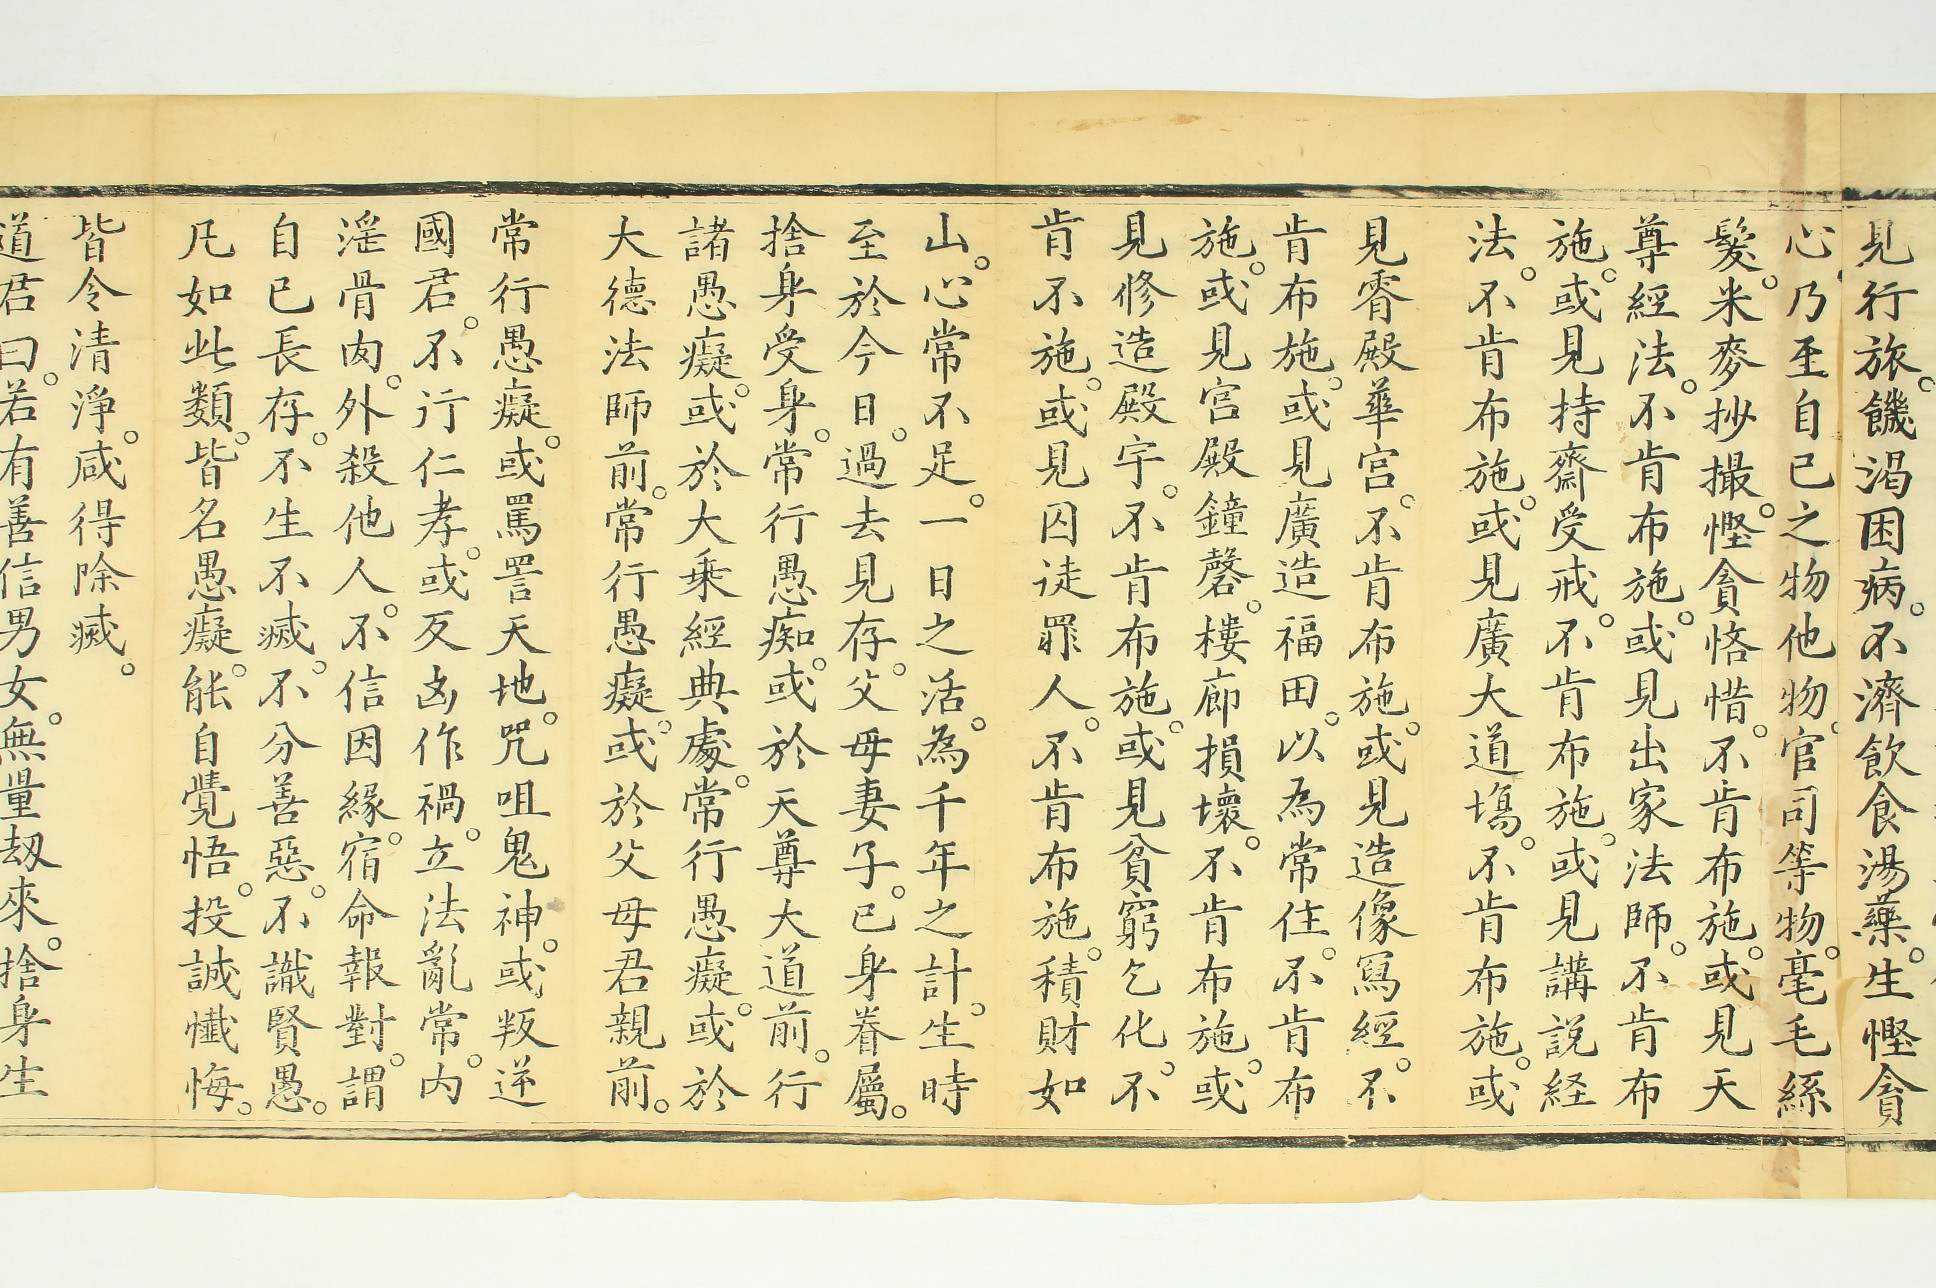 見行旅。饑渴困病。不濟飲食湯藥。生慳貪
心。乃至自己之物他物。官司等物。毫毛絲
髮。米麥抄撮。慳貪恡惜。不肯布施。或見天
尊經法。不肯布施。或見出家法師。不肯布
施。或見持齋受戒。不肯布施。或見講說経
法。不肯布施。或見廣大道塲。不肯布施。或
見霄殿華宮。不肯布施。或見造像冩經。不
肯布施。或見廣造福田。以為常住。不肯布
施。或見宮殿鐘磬。樓廊損壞。不肯布施。或
見修造殿宇。不肯布施。或見貧窮乞化。不
肯不施。或見囚徒罪人。不肯布施。積財如
山。心常不足。一日之活。為千年之計。生時
至於今日。過去見存。父母妻子。己身眷屬。
捨身受身。常行愚痴。或於天尊大道前。行
諸愚癡。或於大乗經典處。常行愚癡。或於
大德法師前。常行愚癡。或於父母君親前。
常行愚癡。或罵詈天地。咒咀鬼神。或叛逆
國君。不行仁孝。或反凶作禍。立法亂常。内
滛骨肉。外殺他人。不信因緣。宿命報對。謂
自己長存。不生不滅。不分善惡。不識賢愚。
凡如此類。皆名愚癡。能自覺悟。投誠懺悔。
皆令清淨。咸得除滅。
道君曰。若有善信男女。無量劫來。捨身生